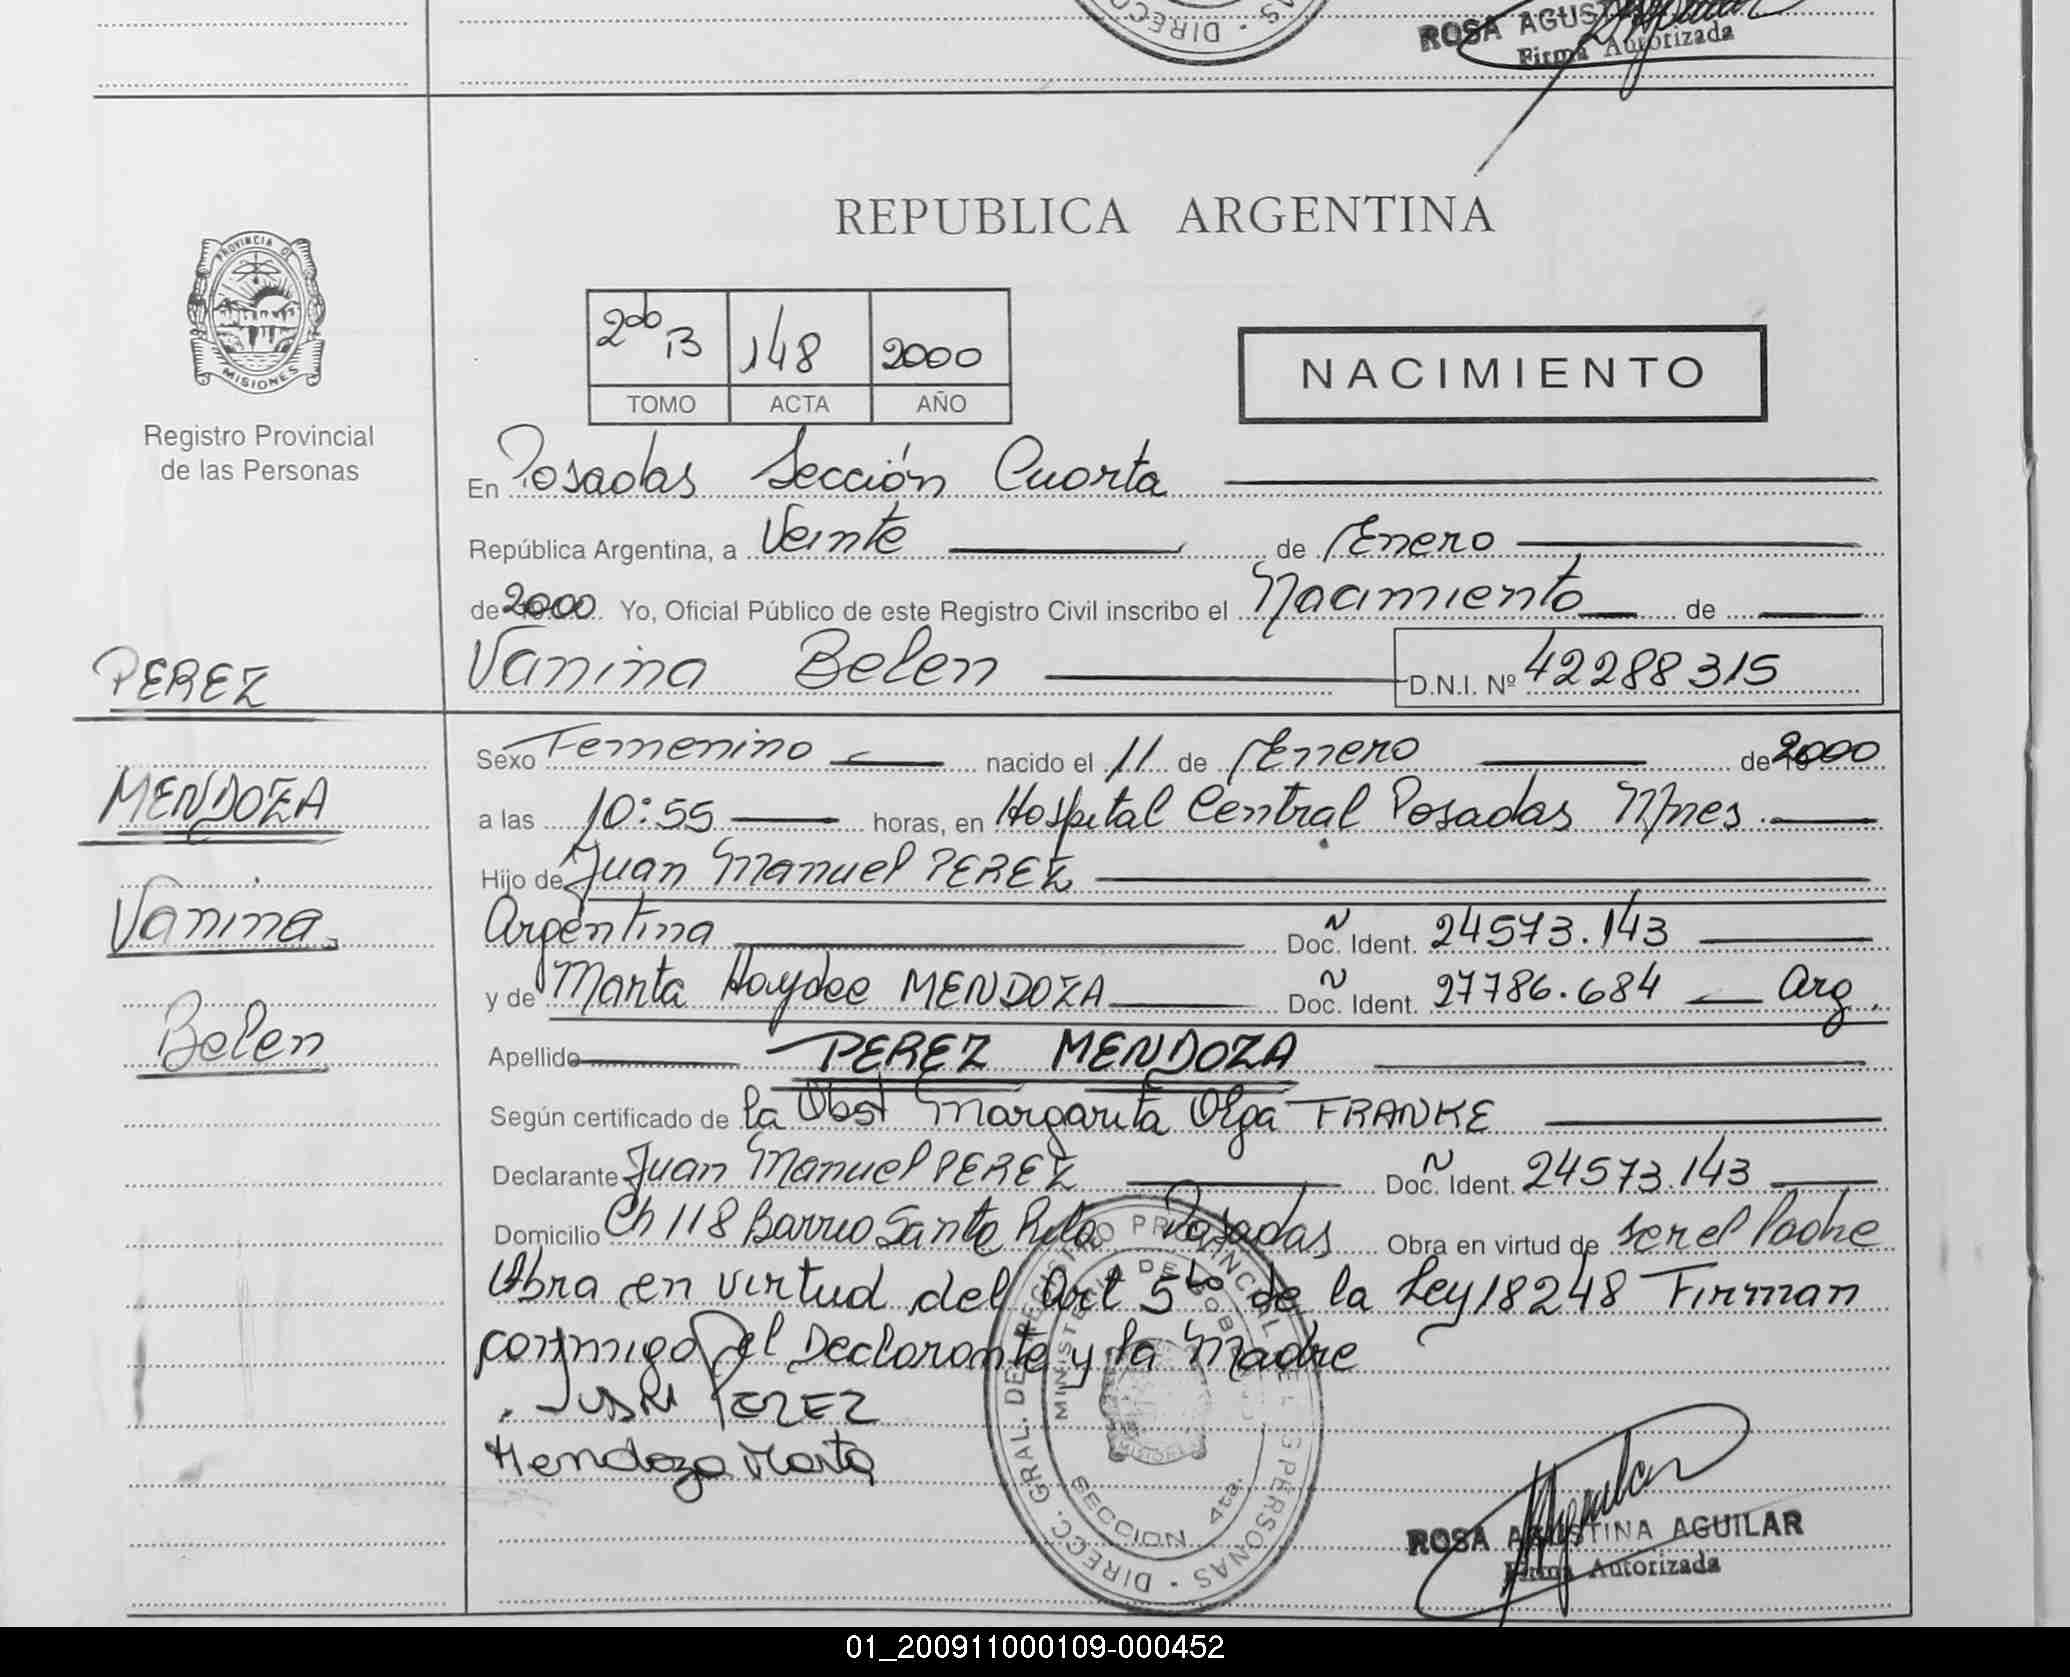 DIREC
ROSA AGUS
Firma Autorizada
REPUBLICA ARGENTINA
PROVINCIA DE
MISIONES
Registro Provincial
de las Personas
2do B 148 2000
TOMO ACTA AÑO
NACIMIENTO
En Posadas Sección Cuarta
República Argentina, a Veinte de Enero
de 2000 Yo, Oficial Público de este Registro Civil inscribo el Nacimiento de
Vanina Belen D.N.I. Nº 42288315
PEREZ
MENDOZA
Vanina
Belen
Sexo Femenino nacido el 11 de Enero de 2000
a las 10:55 horas, en Hospital Central Posadas Mnes
Hijo de Juan Manuel PEREZ
Argentina Doc. Ident. 24573.143
y de Marta Haydee MENDOZA Doc. Ident. 27786.684 Arg.
Apellido PEREZ MENDOZA
Según certificado de la Obst Margarita Olga FRANKE
Declarante Juan Manuel PEREZ Doc. Ident. 24573.143
Domicilio Ch 118 Barrio Santa Rita Posadas Obra en virtud de ser el Padre
Obra en virtud del Art 5to de la Ley 18248 Firman
conmigo el Declarante y la Madre
JUAN PEREZ
Mendoza Marta
DIREC. GRAL. DEL REGISTRO PROVINCIAL DE PERSONAS
MINISTERIO DE GOB
MISIONES
SECCION 4ta.
ROSA AGUSTINA AGUILAR
Firma Autorizada
01_200911000109-000452